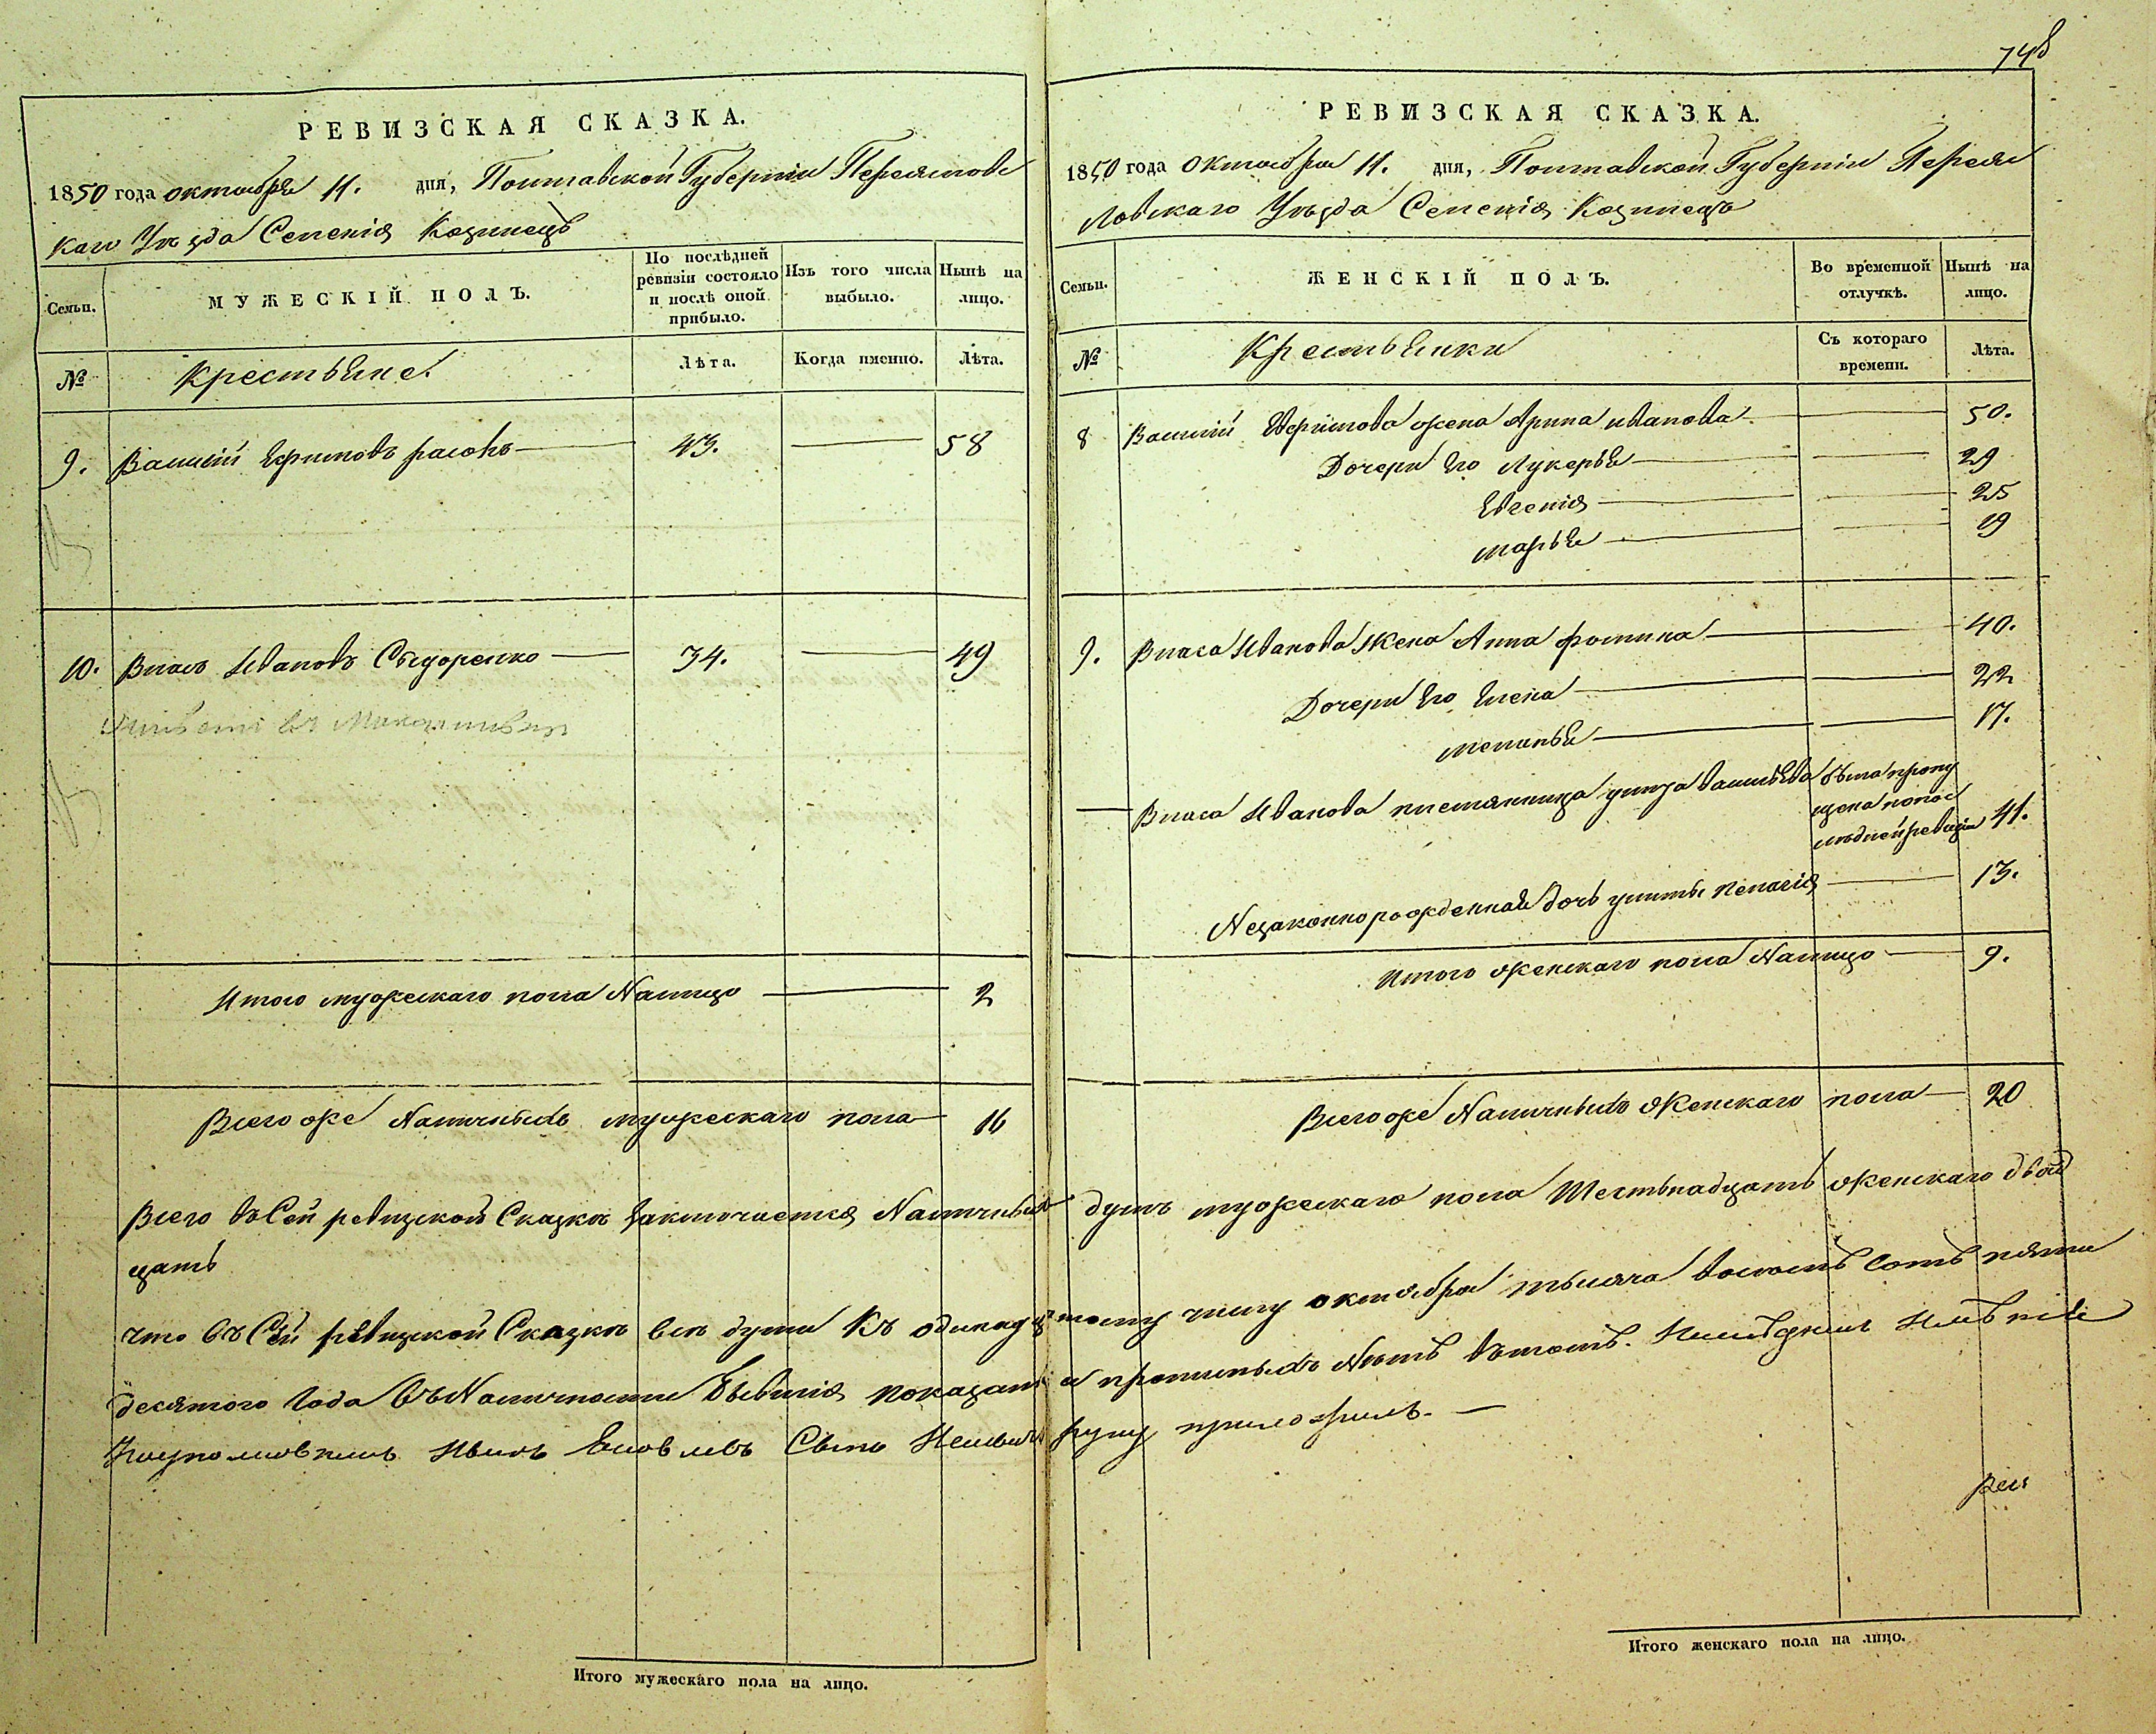 748
РЕВИЗСКАЯ СКАЗКА.
1850 года октября 11. дня, Полтавской Губерніи Переяслов
каго Уѣзда Селенія Козинецъ
Семьи.
МУЖЕСКІЙ ПОЛЪ.
По послѣдней ревизіи состояло и послѣ оной прибыло.
Изъ того числа выбыло.
Нынѣ на лицо.
№
Крестьяне.
Лѣта.
Когда именно.
Лѣта.
9. Василій Ефимовъ 43. 58
10. Власъ Ивановъ Сыдоренко 34. 49
Итого мужескаго пола Налицо 2
Всего же Наличныхъ мужескаго пола 16
РЕВИЗСКАЯ СКАЗКА.
1850 года Октября 11. дня, Полтавской Губерніи Переяс
ловскаго Уѣзда Селенія Козинецъ
Семьи.
ЖЕНСКІЙ ПОЛЪ.
Во временной отлучкѣ.
Нынѣ на лицо.
№
Крестьянки
Съ котораго времени.
Лѣта.
8 Василій Ефимова жена Арина иванова 50.
Дочери Его Лукерья 29
Евгенія 25
марья 19
9. Власа Иванова Жена Анна фомина 40.
Дочери Его Елена 22
меланья 17.
Власа Иванова племянница улита васильева была пропу
щена попос
лѣдней ревизіи 41.
Незаконнорожденная дочь улиты пелагія 13.
Итого женскаго пола Налицо 9.
Всего же Наличныхъ Женскаго пола 20
Всего въ Сей ревизской Сказкѣ заключается Наличныхъ душъ мужескаго пола Шестьнадцать женскаго двад
цать
что въ Сей ревизской Сказкѣ всѣ души Къ одинадцатому числу октября тысяча восемь сотъ пяти
десятого Года Въ Наличности бывшія показаны и прописныхъ Нѣтъ въ томъ
Сынъ руку приложилъ.
Итого мужескаго пола на лицо.
Итого женскаго пола на лицо.